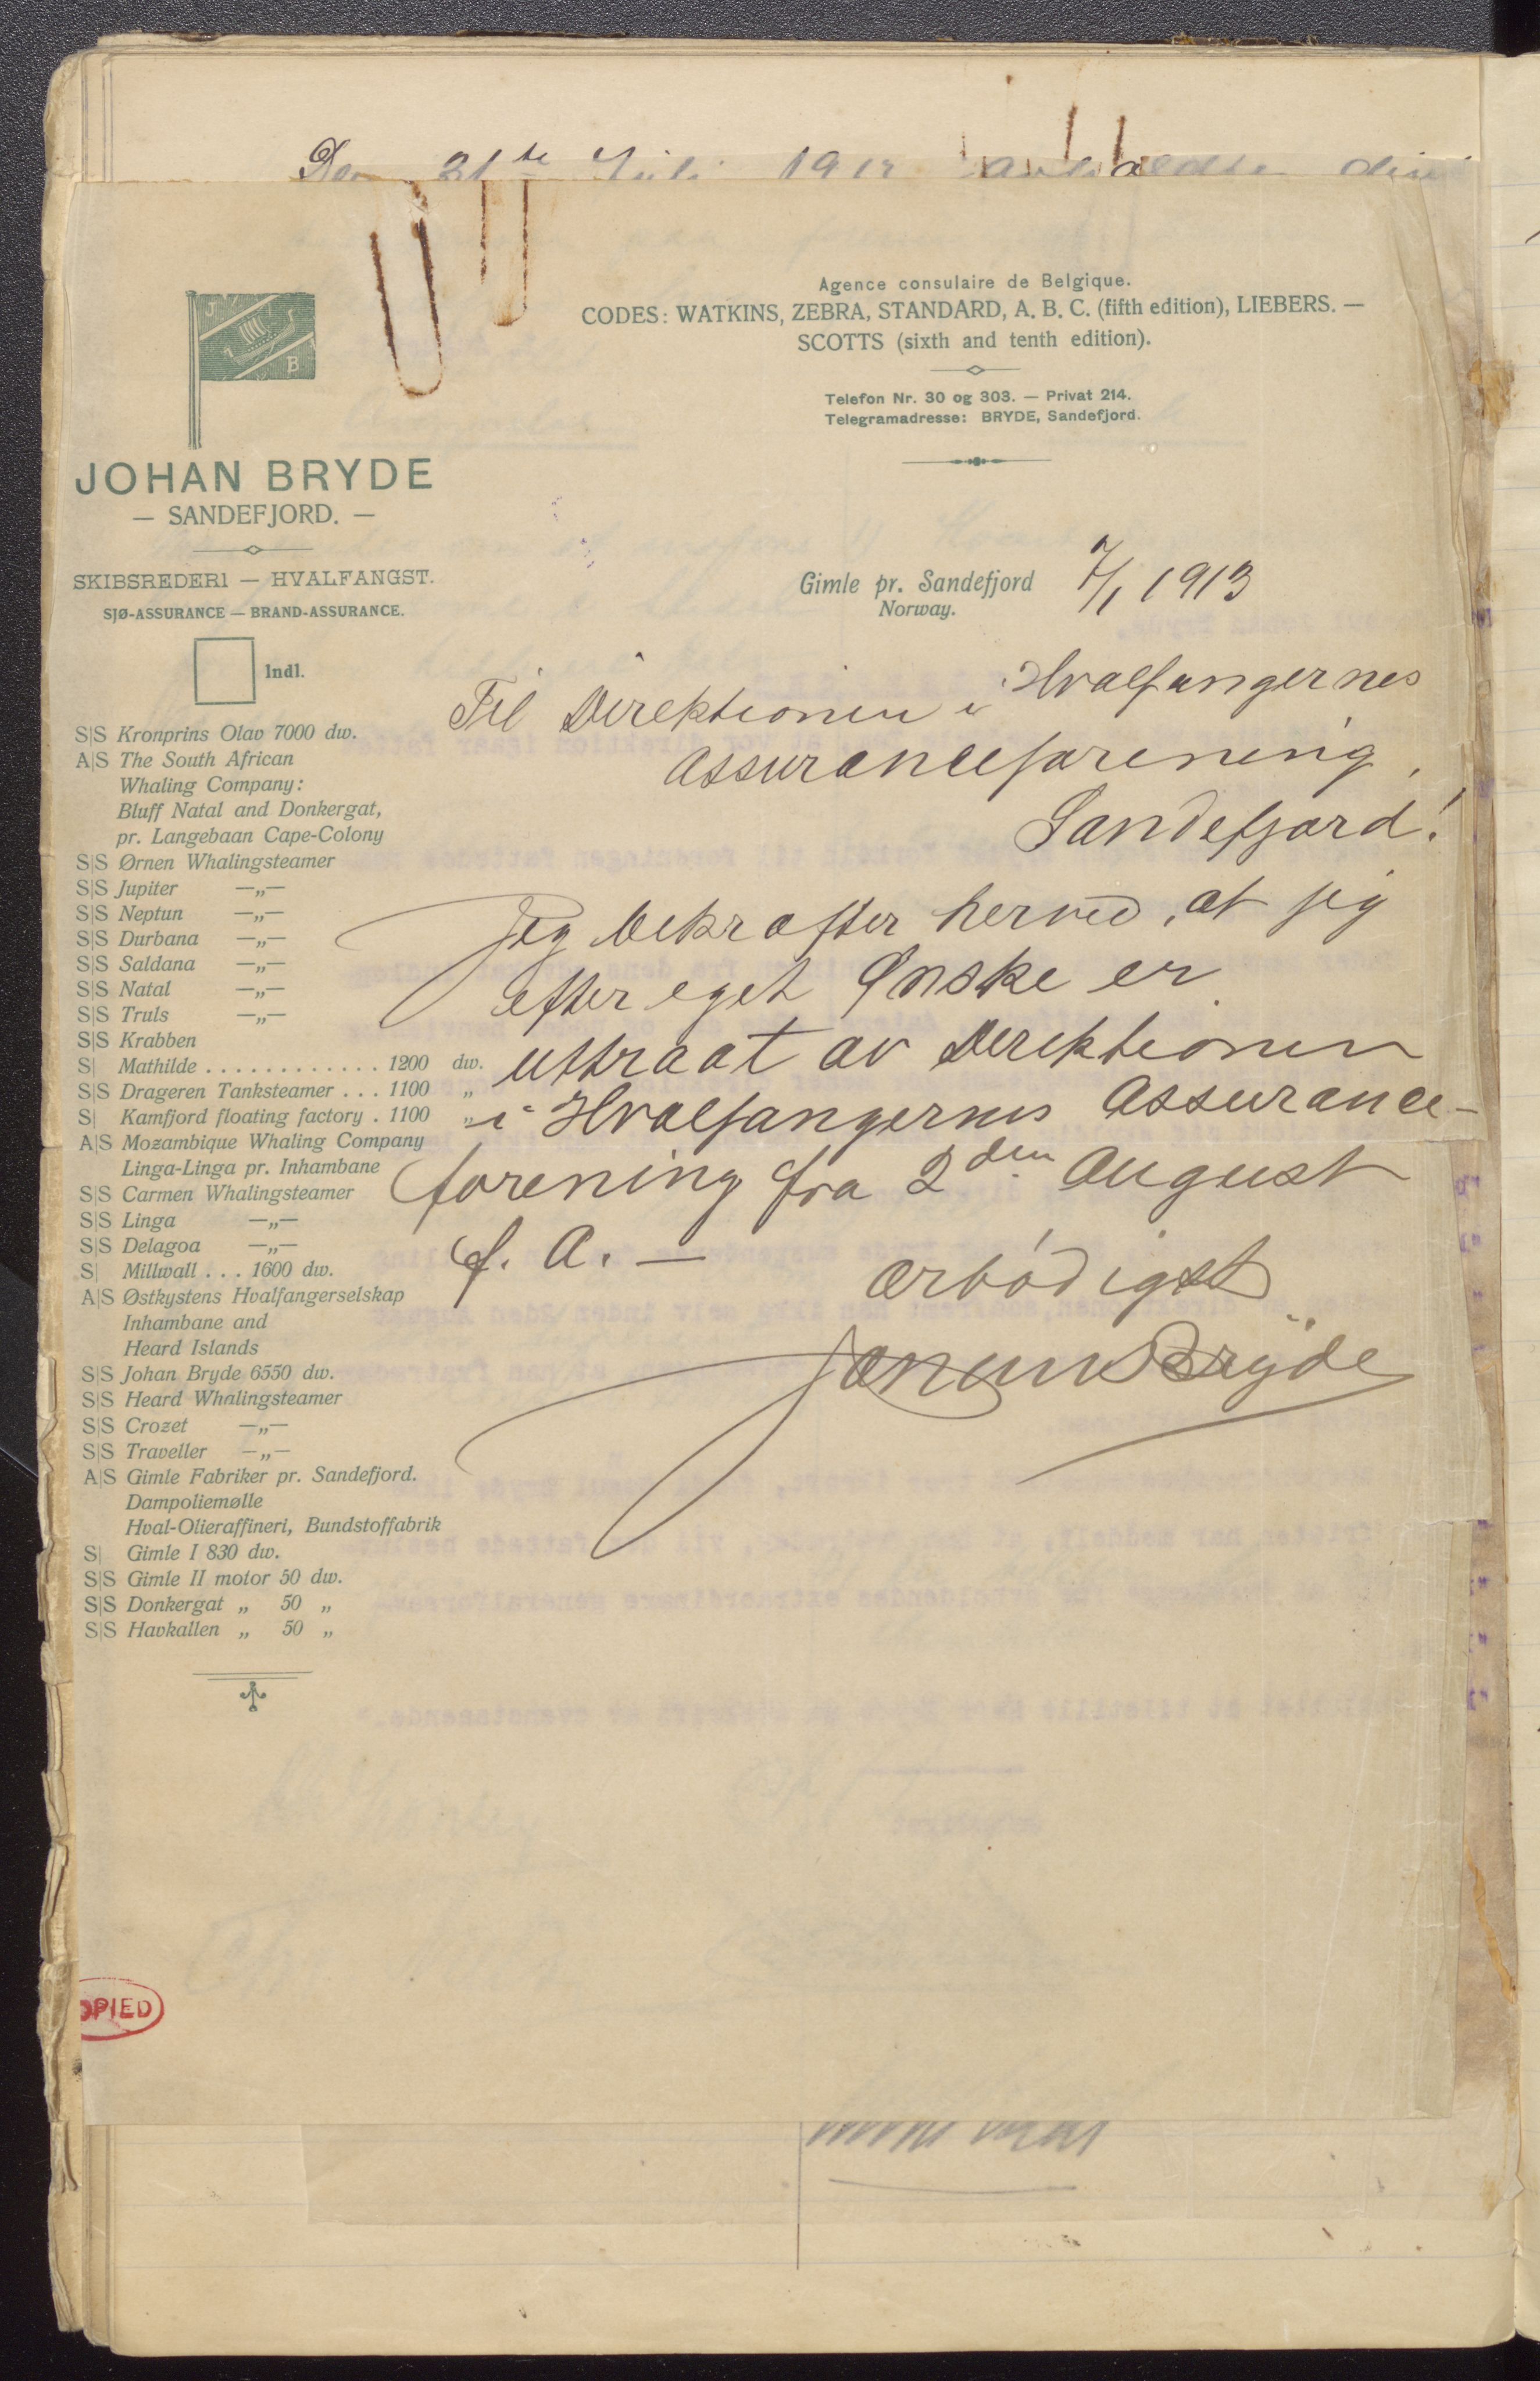 Den 31te Juli 191
J
B
JOHAN BRYDE
— SANDEFJORD. —
SKIBSREDERI — HVALFANGST.
SJØ-ASSURANCE — BRAND-ASSURANCE.
Indl.
Agence consulaire de Belgique.
CODES: WATKINS, ZEBRA, STANDARD, A. B. C. (fifth edition), LIEBERS. —
SCOTTS (sixth and tenth edition).
Telefon Nr. 30 og 303. — Privat 214.
Telegramadresse: BRYDE, Sandefjord.
Gimle pr. Sandefjord 7/1 1913
Norway.
S|S Kronprins Olav 7000 dw.
A|S The South African
Whaling Company:
Bluff Natal and Donkergat,
pr. Langebaan Cape-Colony
S|S Ørnen Whalingsteamer
S|S Jupiter —„—
S|S Neptun —„—
S|S Durbana —„—
S|S Saldana —„—
S|S Natal —„—
S|S Truls —„—
S|S Krabben
S| Mathilde . . . . . . . . . . . . 1200 dw.
S|S Drageren Tanksteamer . . . 1100 „
S| Kamfjord floating factory . 1100 „
A|S Mozambique Whaling Company
Linga-Linga pr. Inhambane
S|S Carmen Whalingsteamer
S|S Linga —„—
S|S Delagoa —„—
S| Millwall . . . 1600 dw.
A|S Østkystens Hvalfangerselskap
Inhambane and
Heard Islands
S|S Johan Bryde 6550 dw.
S|S Heard Whalingsteamer
S|S Crozet —„—
S|S Traveller —„—
A|S Gimle Fabriker pr. Sandefjord.
Dampoliemølle
Hval-Olieraffineri, Bundstoffabrik
S| Gimle I 830 dw.
S|S Gimle II motor 50 dw.
S|S Donkergat „ 50 „
S|S Havkallen „ 50 „
Til Direktionen i Hvalfangernes
Assuranceforening,
Sandefjord!
Jeg bekræfter herved, at jeg
efter eget Ønske er
uttraat av Direktionen
i Hvalfangernes Assurance-
forening fra 2den August
f. A. —
Ærbødigst
Johan Bryde
OPIED